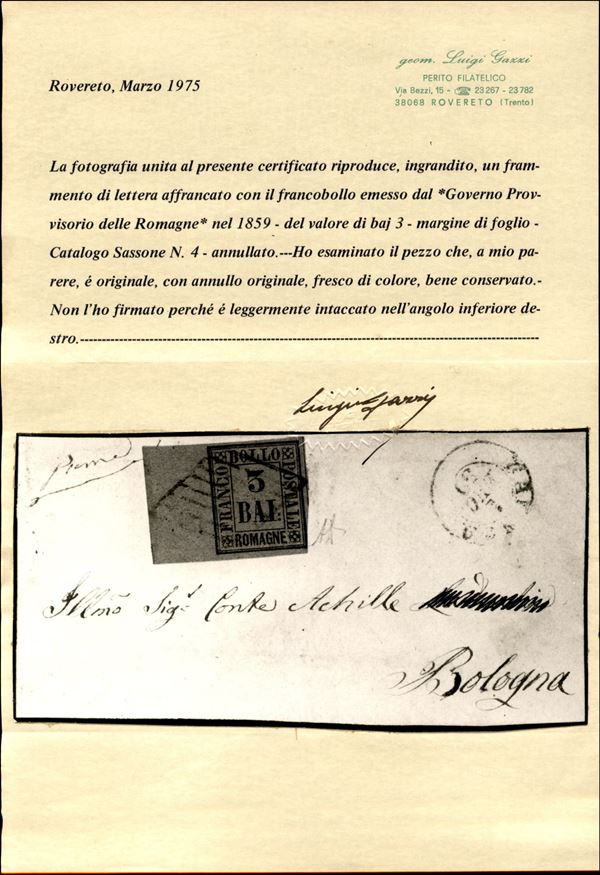 geom. Luigi Gazzi
PERITO FILATELICO
Via Bezzi, 15 - ☎ 23267 - 23782
38068 ROVERETO (Trento)
Rovereto, Marzo 1975
La fotografia unita al presente certificato riproduce, ingrandito, un fram-
mento di lettera affrancato con il francobollo emesso dal *Governo Prov-
visorio delle Romagne* nel 1859 - del valore di baj 3 - margine di foglio -
Catalogo Sassone N. 4 - annullato.---Ho esaminato il pezzo che, a mio pa-
rere, é originale, con annullo originale, fresco di colore, bene conservato.-
Non l'ho firmato perché é leggermente intaccato nell'angolo inferiore de-
stro.---
Luigi Gazzi
FRANCO BOLLO POSTALE
3
BAI
ROMAGNE
Illmo Sigr Conte Achille
Bologna